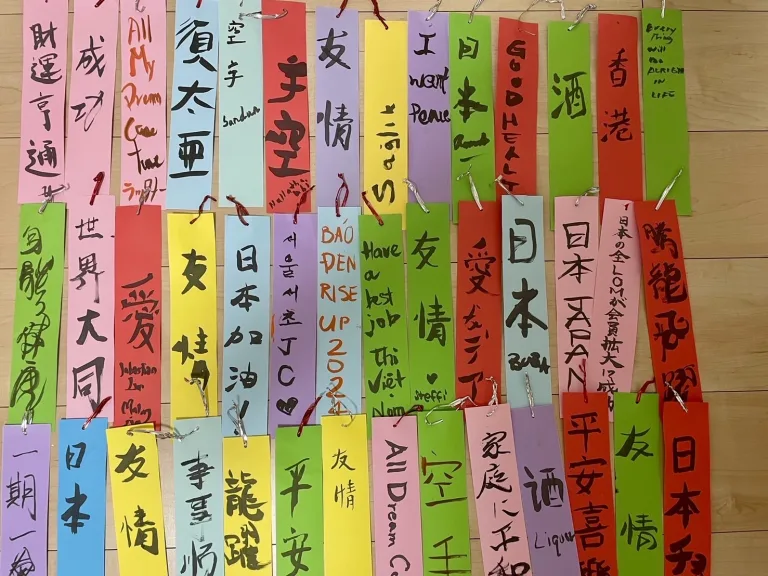 財運亨通
成功
All
My
Dream
Come
True
須太亜
空手
Sandun
空
友情
I
want
Peace
日本
GOOD HEALT
酒
香港
Every
thing
will
be
IN
LIFE
世界大同
愛
友情
日本加油!
서울서초JC♥
BAO
DEN
RISE
UP
202
Have
a
best
job
Thi
Việt
Nam
友情
♥
Steffi
愛
日本
日本 JAPAN
日本の全LOMが会員拡大に成
騰龍飛躍
一期一
日本
友情
事
龍躍
平安
友情
All Dream Co
空手
家庭に平和
酒
Liquor
平安喜
友情
日本